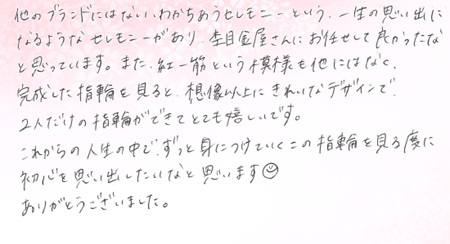 他のブランドにはない、わかちあうセレモニーという、一生の思い出に
なるようなセレモニーがあり、杢目金屋さんにお任せして良かったな
と思っています。また、紅一筋という模様も他にはなく、
完成した指輪を見ると、想像以上にきれいなデザインで、
2人だけの指輪ができてとても嬉しいです。
これからの人生の中で、ずっと身につけていくこの指輪を見る度に
初心を思い出したいなと思います☺
ありがとうございました。